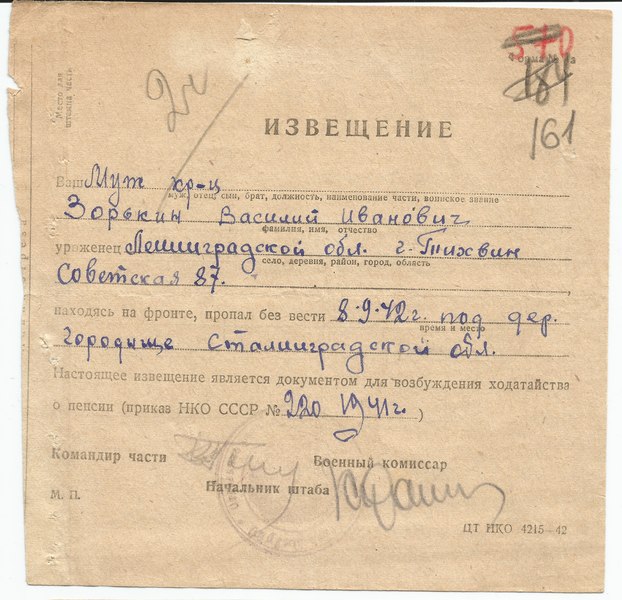 570
Форма №
184
161
2и
Место для
штампа части
ИЗВЕЩЕНИЕ
Ваш Муж кр-ц
муж, отец, сын, брат, должность, наименование части, воинское звание
Зорькин Василий Иванович
фамилия, имя, отчество
уроженец Ленинградской обл. г. Тихвин
село, деревня, район, город, область
Советская 87.
находясь на фронте, пропал без вести 8.9.42г. под дер.
время и место
Городище Сталинградской обл.
Настоящее извещение является документом для возбуждения ходатайства
о пенсии (приказ НКО СССР № 220 1941г. )
Командир части
Военный комиссар
Начальник штаба
М. П.
ЦТ НКО 4215-42